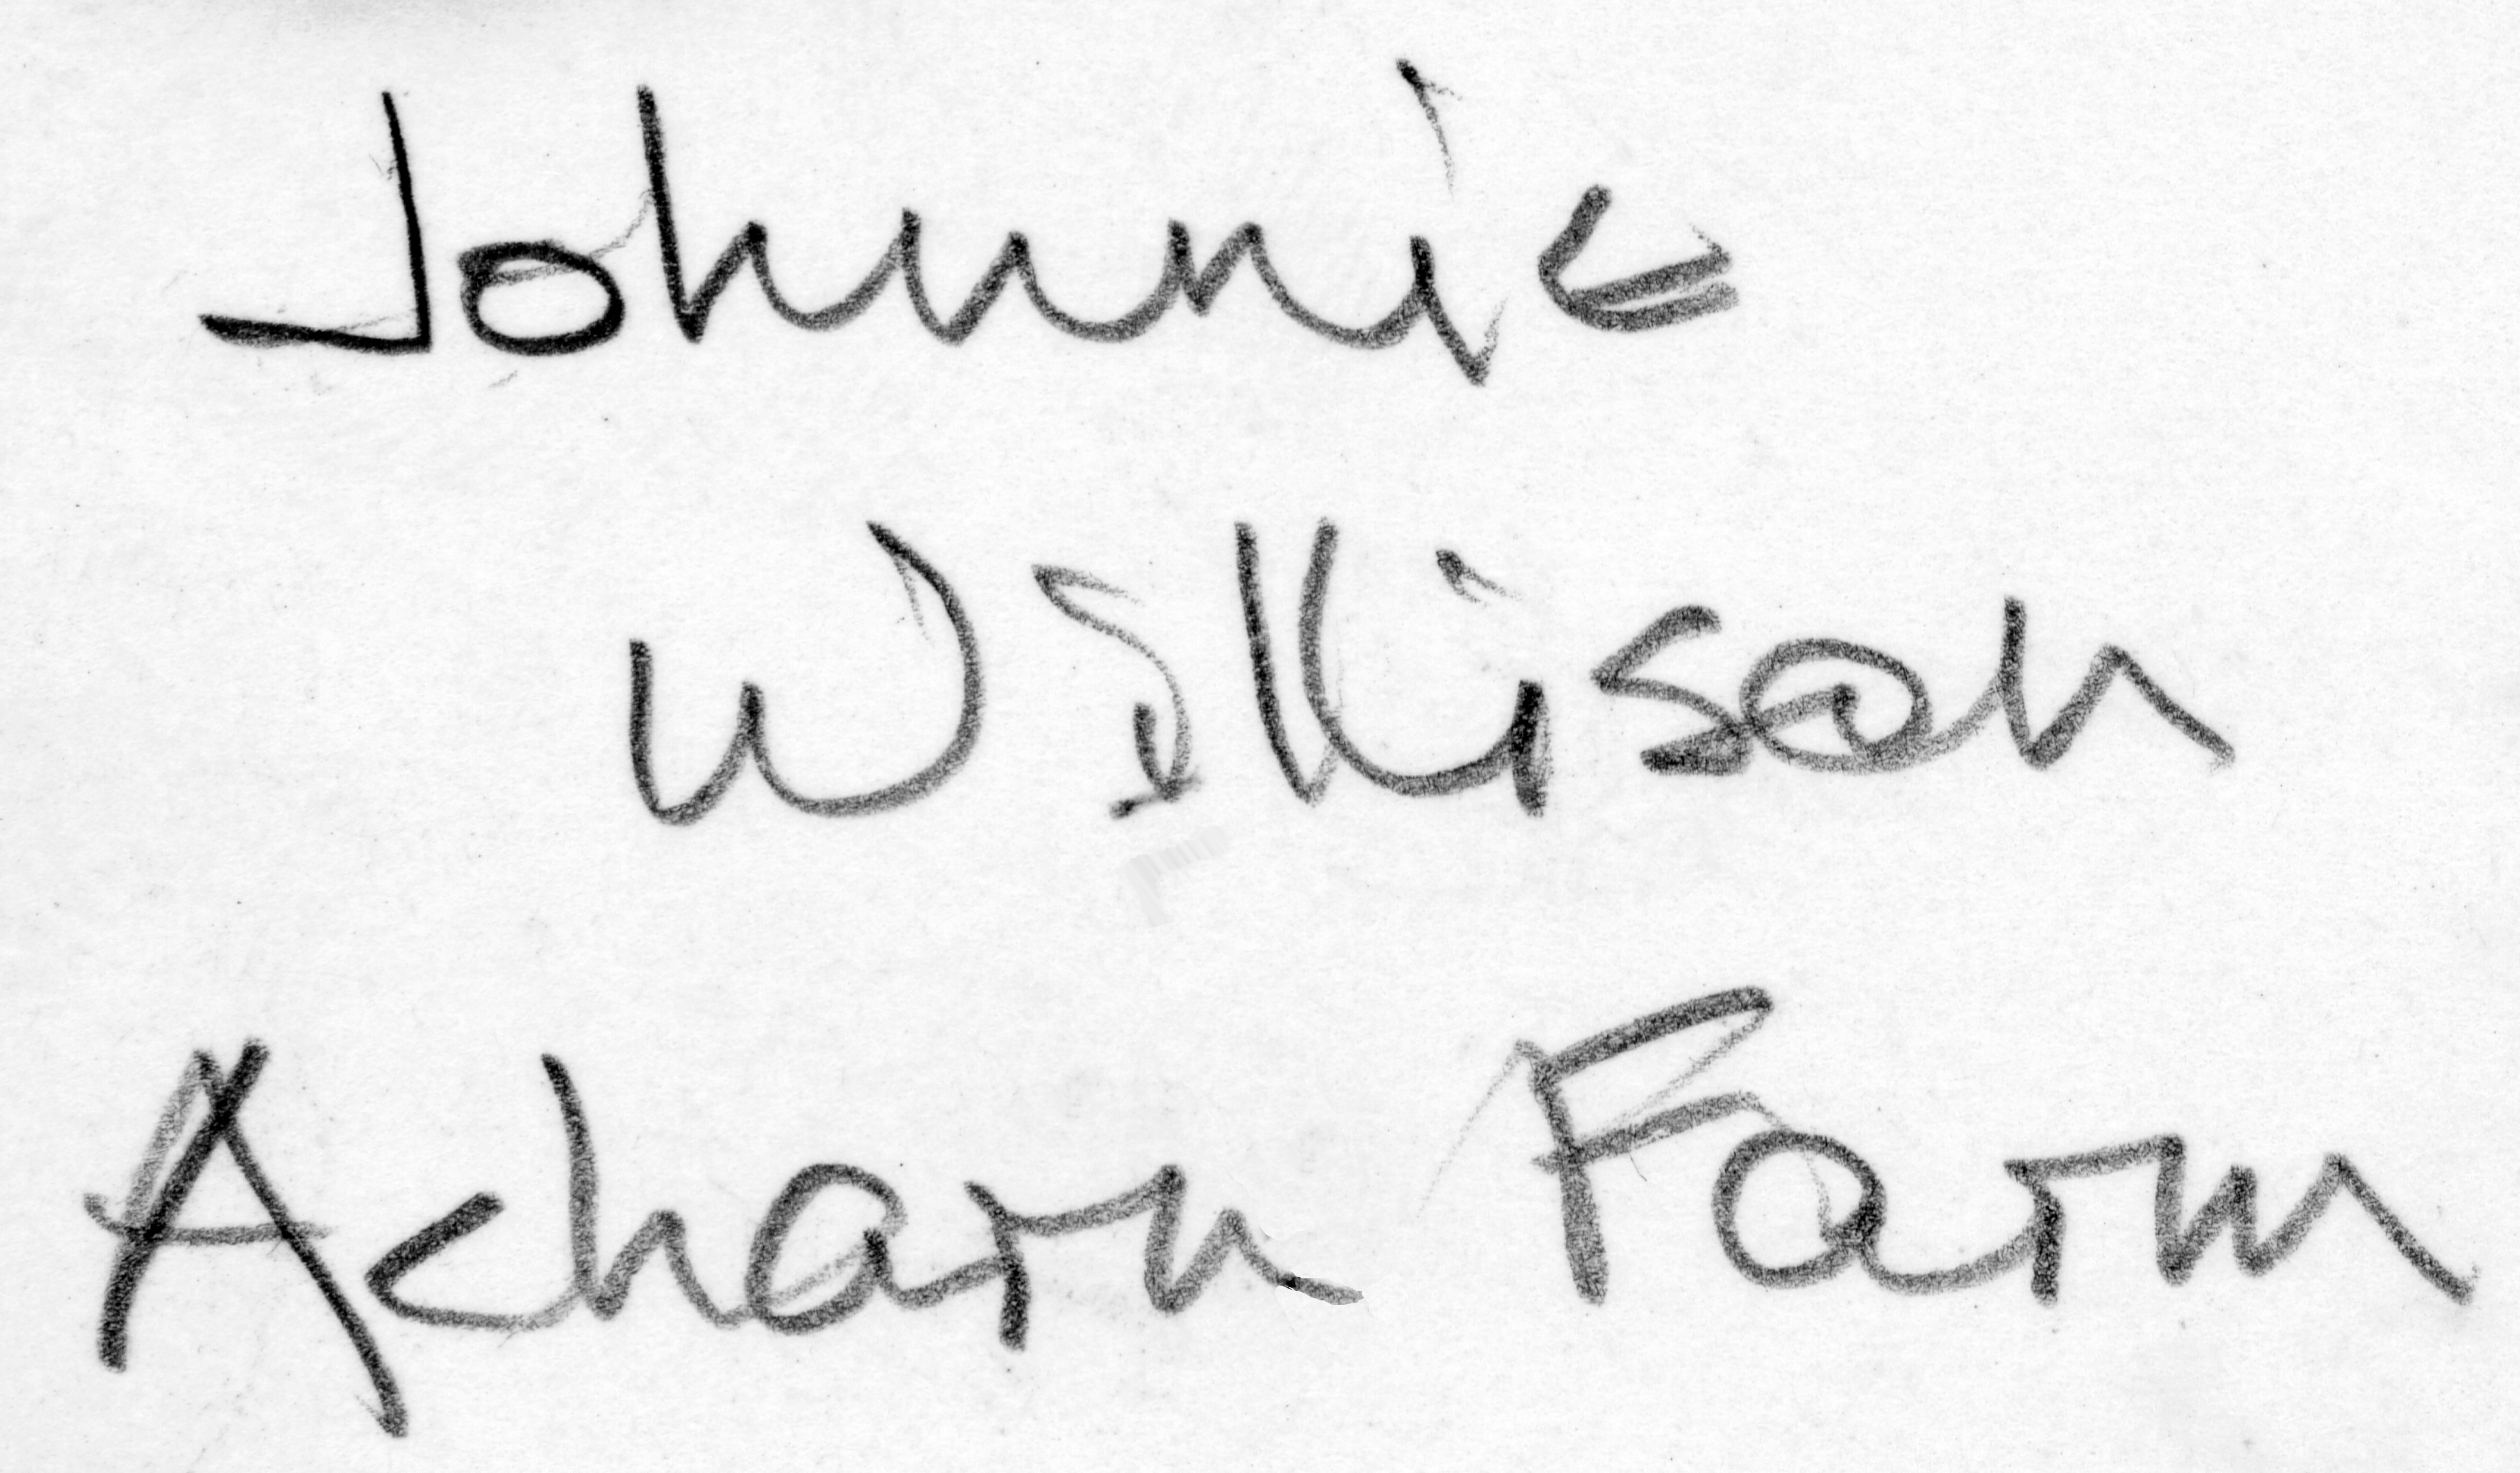 Johnnie
Willison
Acharn Farm